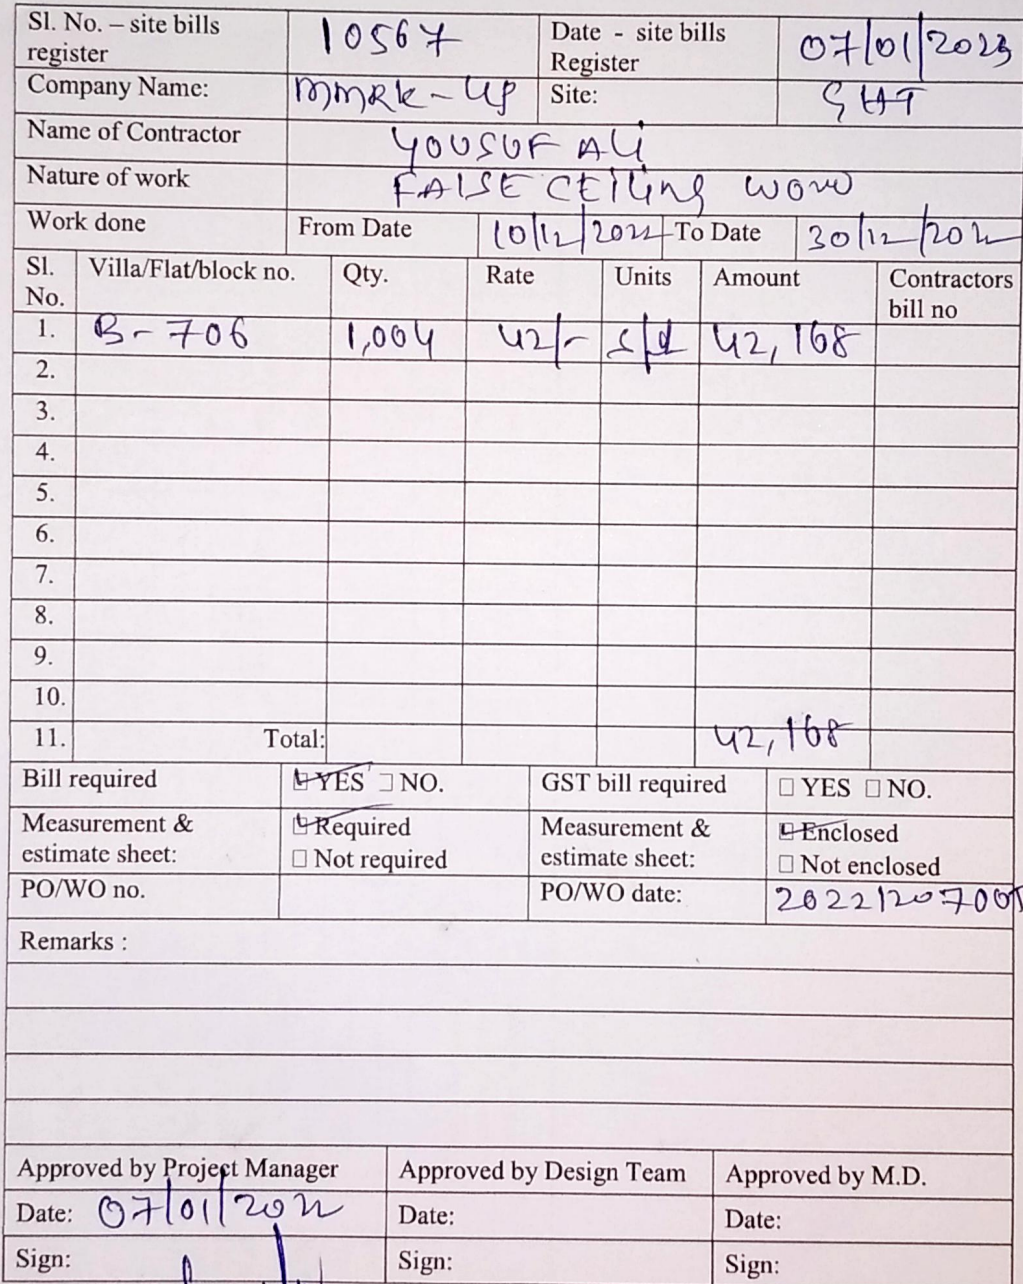 Sl. No. – site bills register 10567 Date - site bills Register 07/01/2023
Company Name: MMRK-UP Site: GHT
Name of Contractor YOUSUF ALi
Nature of work FALSE CEILing WORK
Work done From Date 10/12/2022 To Date 30/12/202
Sl. No. Villa/Flat/block no. Qty. Rate Units Amount Contractors bill no
1. B-706 1,004 42/- 42,168
2.
3.
4.
5.
6.
7.
8.
9.
10.
11. Total: 42,168
Bill required YES □ NO. GST bill required □ YES □ NO.
Measurement & estimate sheet: Required □ Not required Measurement & estimate sheet: Enclosed □ Not enclosed
PO/WO no. PO/WO date: 20221207005
Remarks :
Approved by Project Manager Approved by Design Team Approved by M.D.
Date: 07/01/202 Date: Date:
Sign: Sign: Sign: